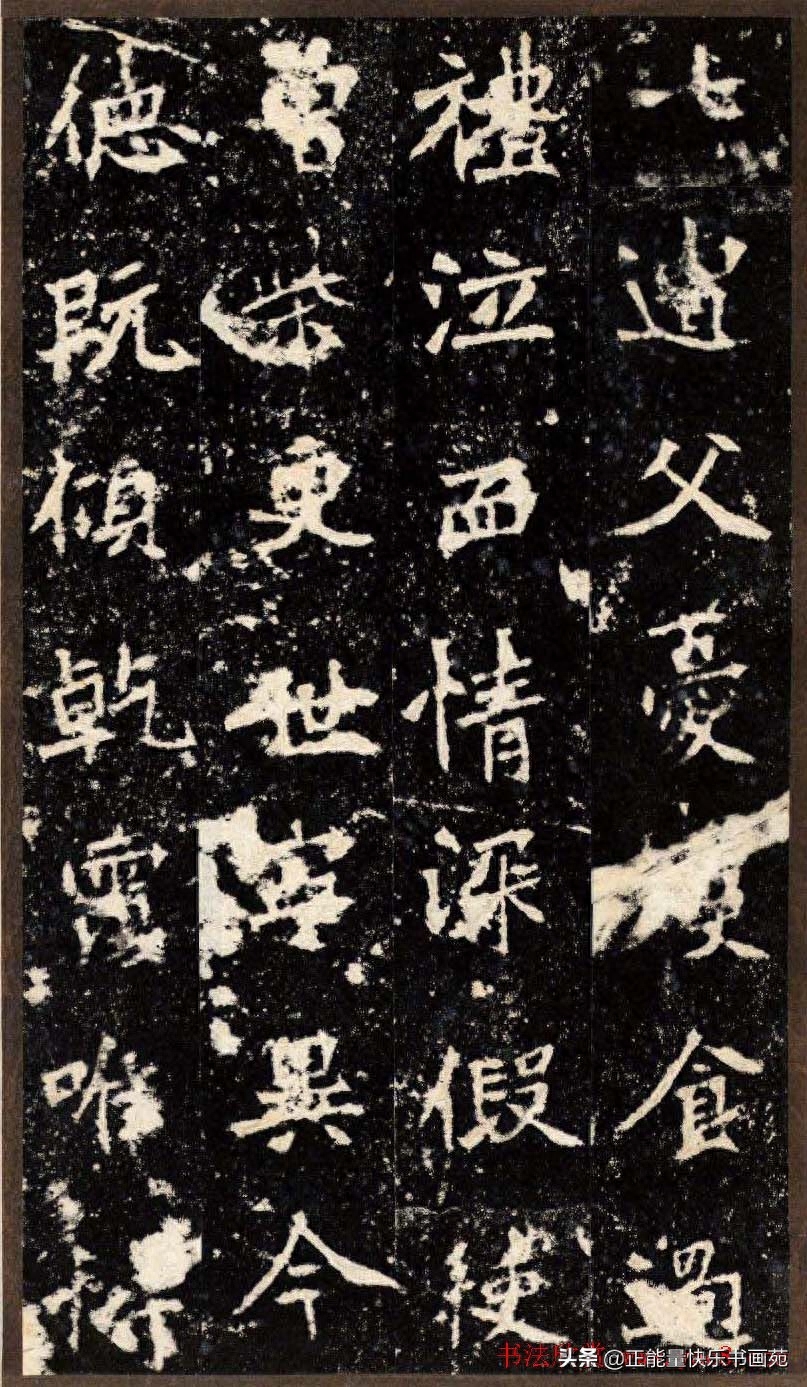 七遭父憂寢食過
禮泣血情深假使
曾柴更世寧異今
德既傾乾覆唯恃
头条 @正能量快乐书画苑